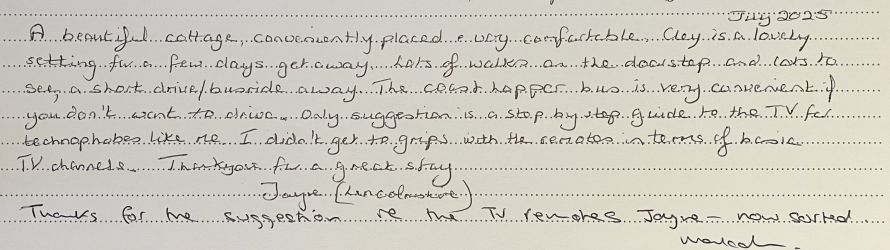 July 2025
A beautiful cottage, conveniently placed & very comfortable. Cley is a lovely
setting for a few days get away. Lots of walks on the doorstep and lots to
see, a short drive/busride away. The coast hopper bus is very convenient if
you don't want to drive. Only suggestion is a step by step guide to the TV for
technophobes like me I didn't get to grips with the remotes in terms of basic
TV channels. Thankyou for a great stay
Jayne (Lincolnshire)
Thanks for the suggestion re the TV remotes Jayne - now sorted.